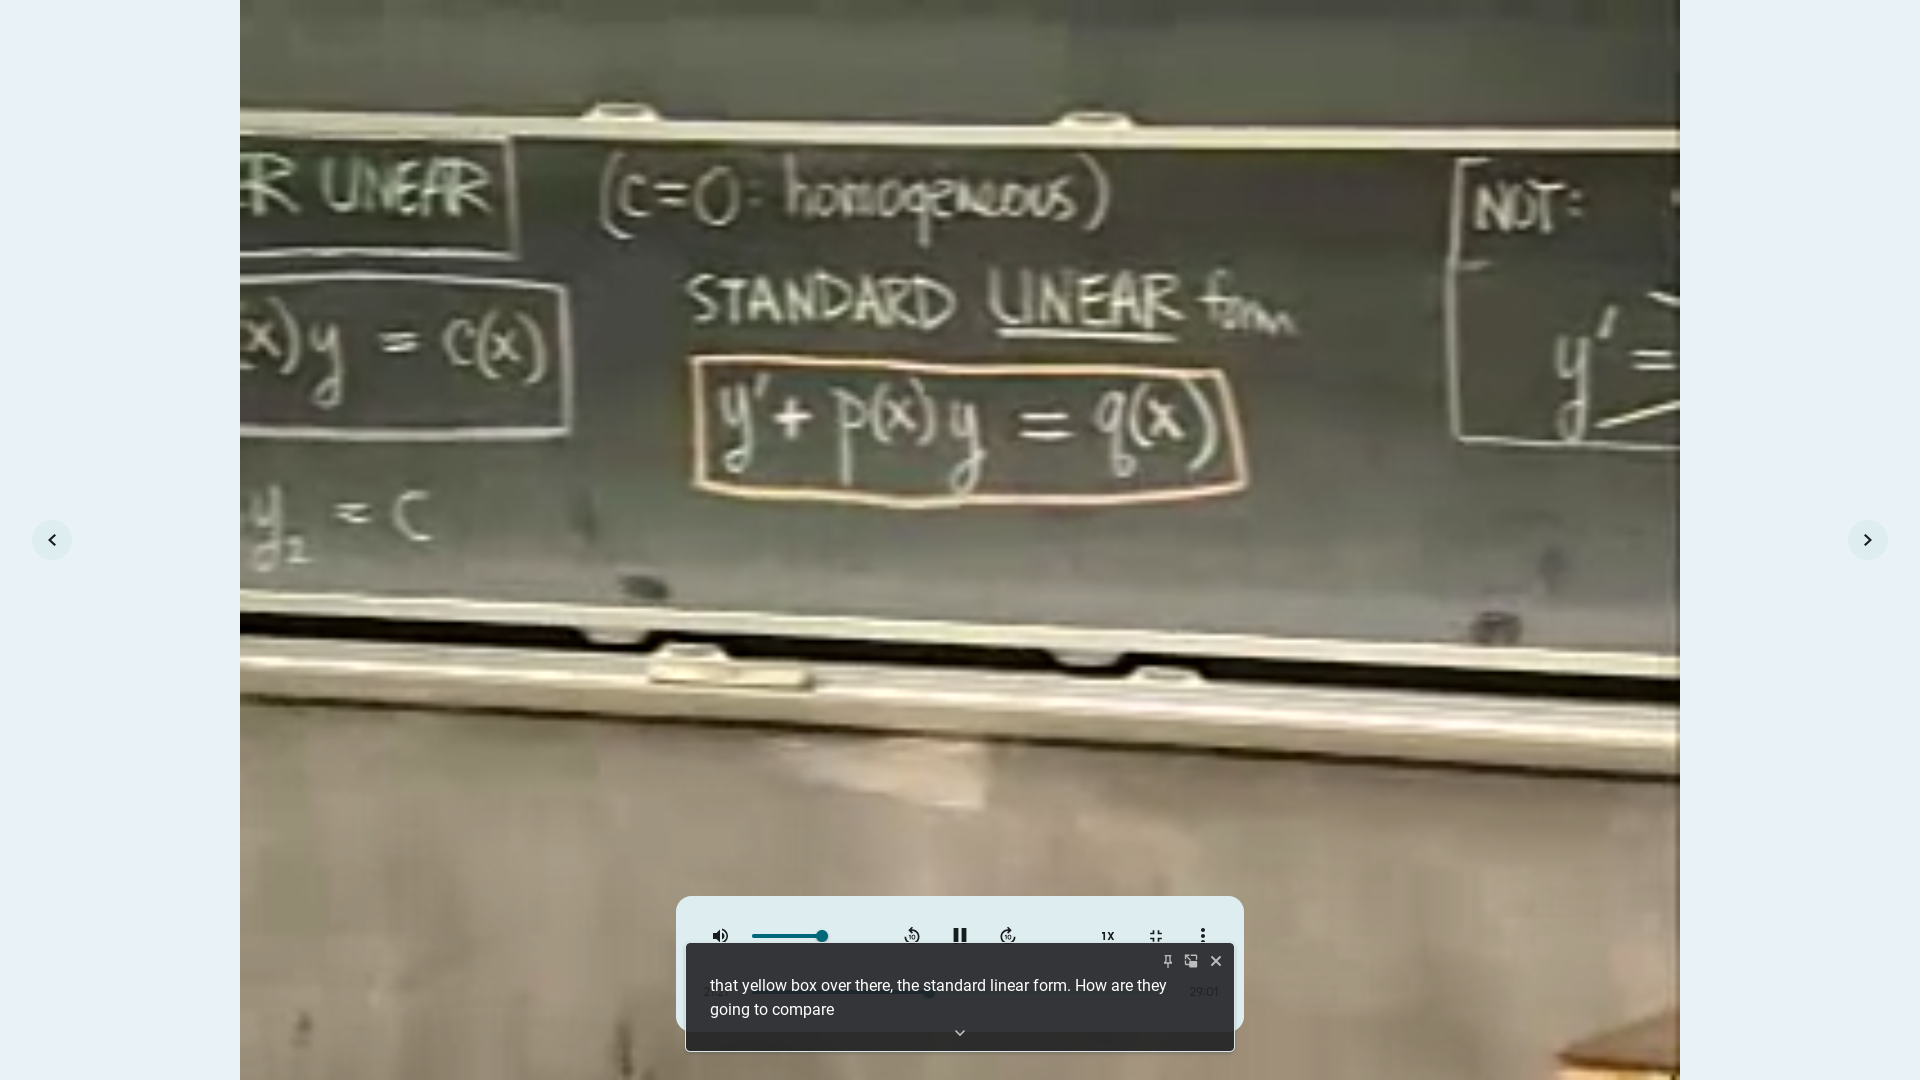 ER LINEAR
(c=0: homogeneous)
NOT:
STANDARD LINEAR form
(x)y = c(x)
y' + p(x)y = q(x)
y' =
y2 = C
1X
that yellow box over there, the standard linear form. How are they
going to compare
29:01